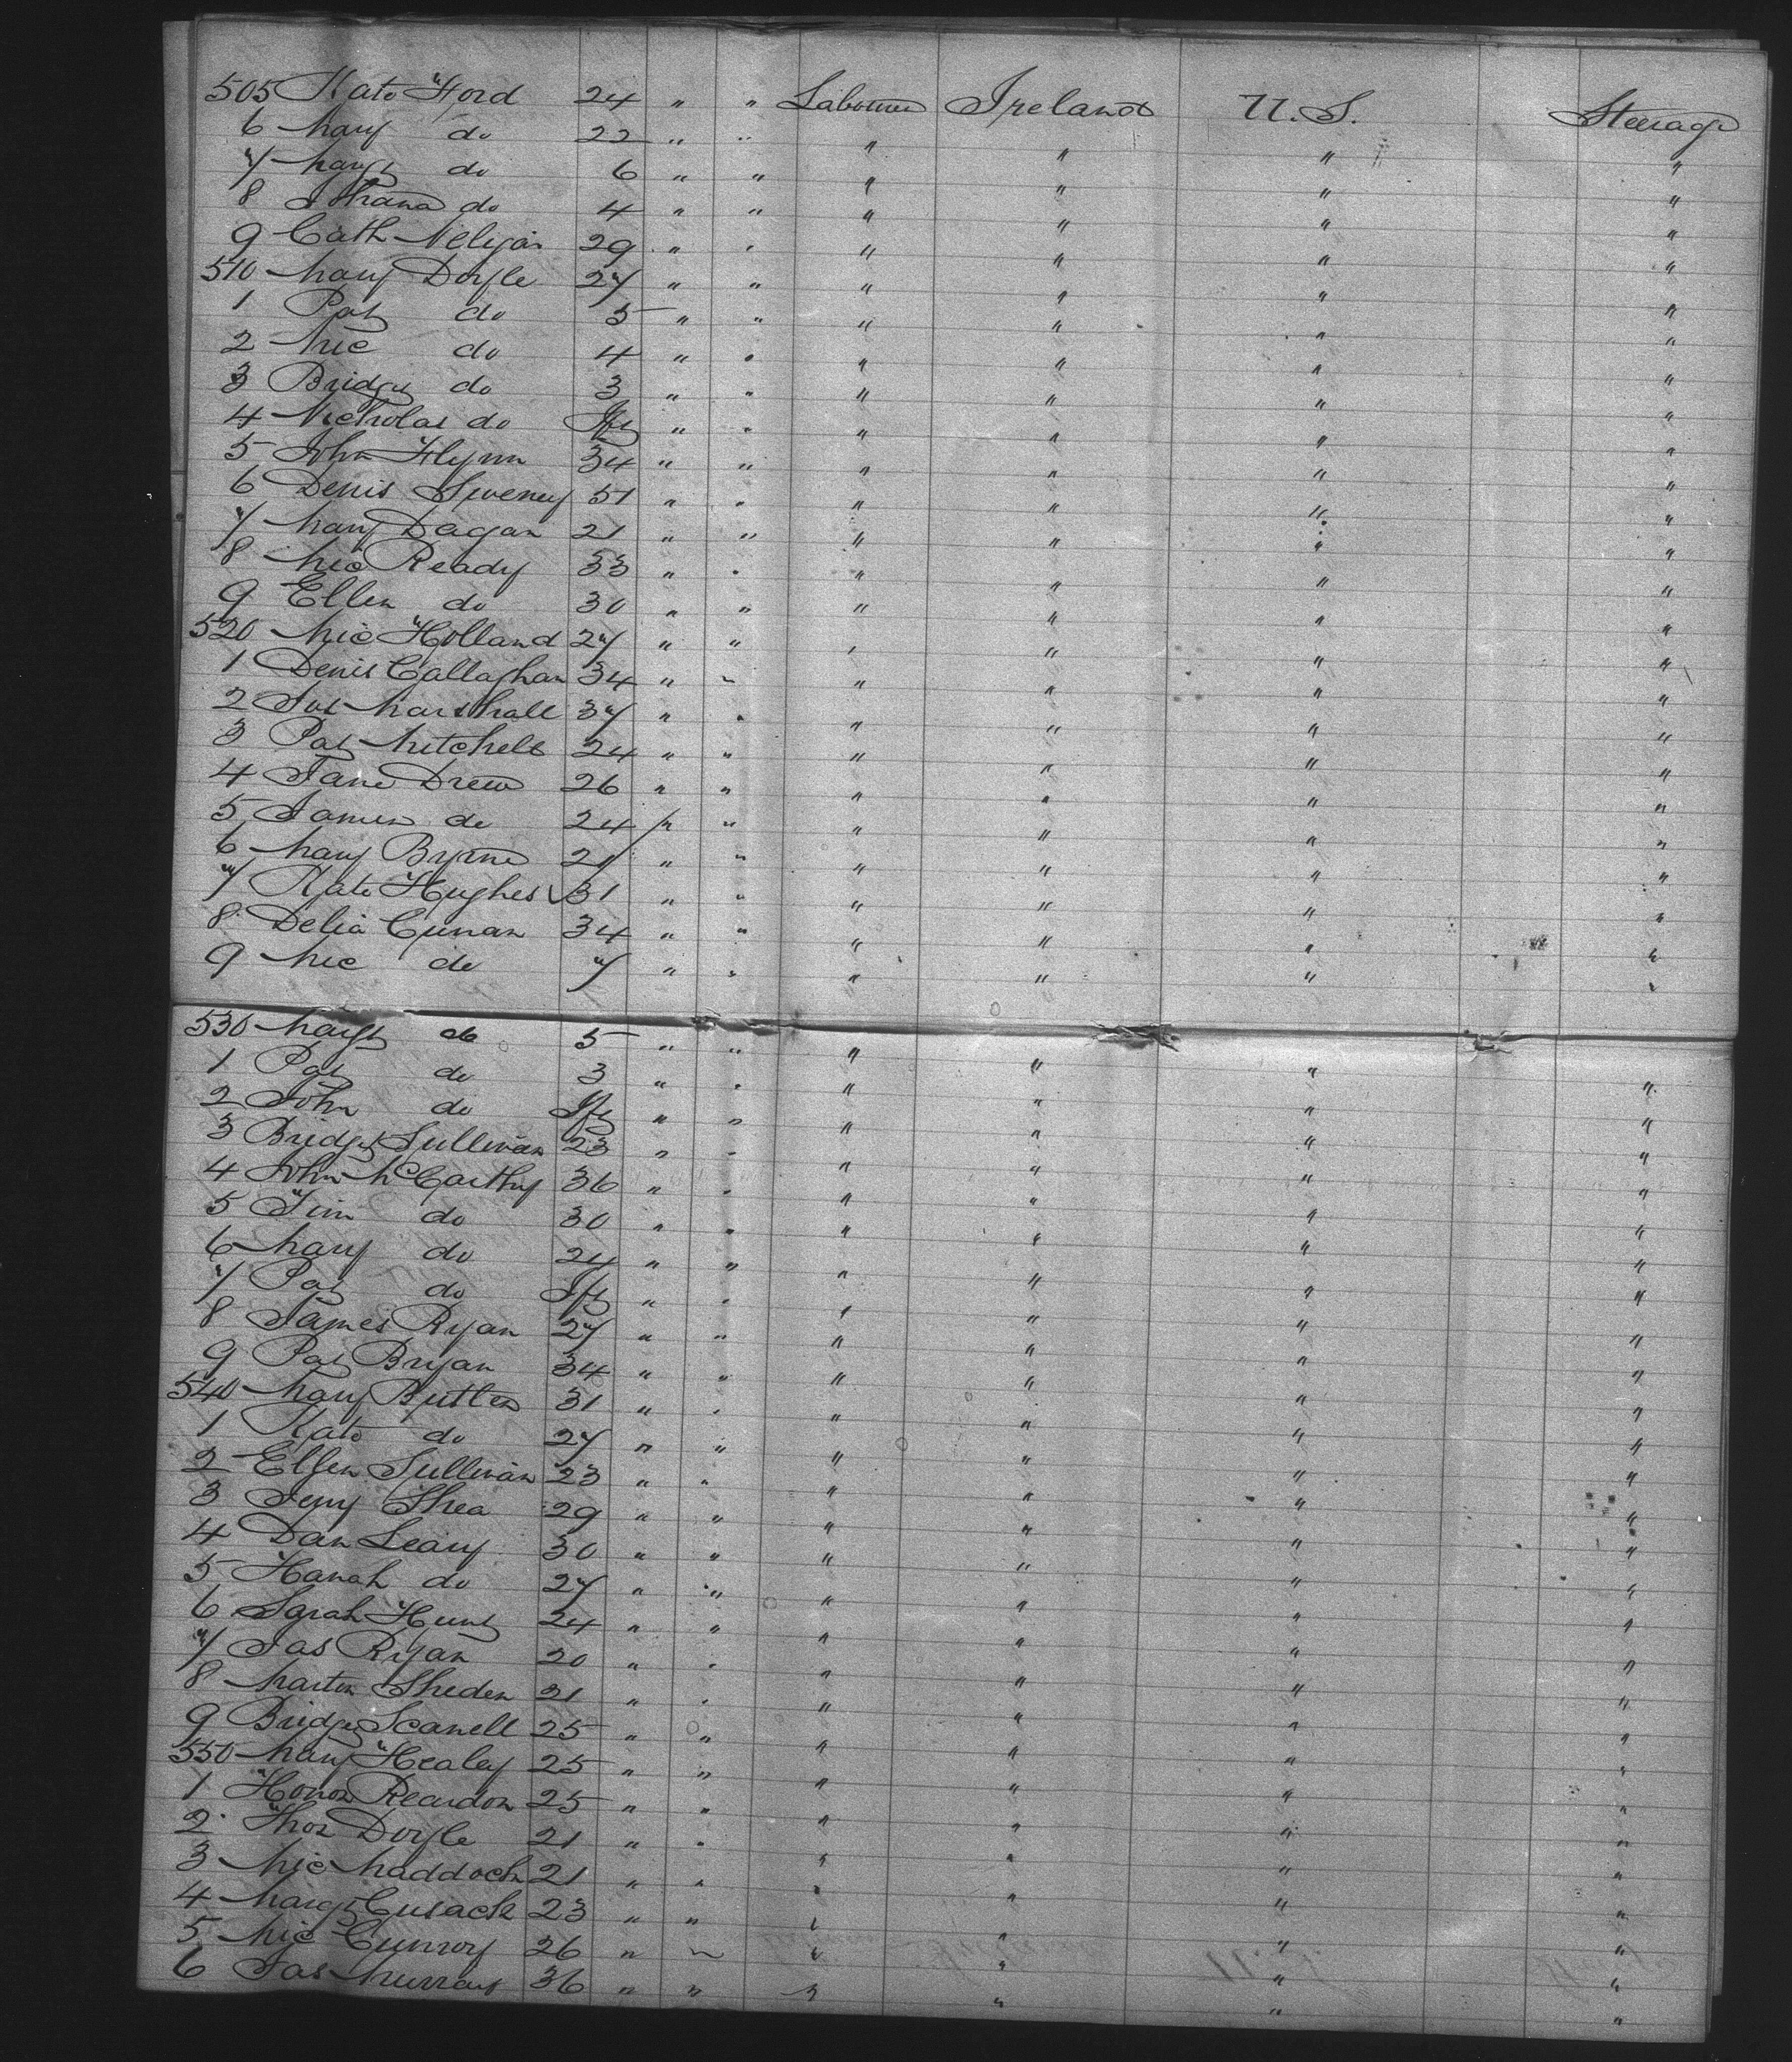 505 Kate Ford 24 " " Labourer Ireland U.S. Steerage
6 Mary do 22 " " " " " "
7 Margt do 6 " " " " " "
8 do 4 " " " " " "
9 Cath 29 " " " " " "
510 Mary Doyle 27 " " " " " "
1 Pat do 5 " " " " " "
2 Mic do 4 " " " " " "
3 Bridget do 3 " " " " " "
4 Nicholas do Inft " " " " " "
5 John Flynn 34 " " " " " "
6 Denis Sweeney 51 " " " " " "
7 Mary Dagan 21 " " " " " "
8 Mic Ready 33 " " " " " "
9 Ellen do 30 " " " " " "
520 Mic Holland 27 " " " " " "
1 Denis Callaghan 34 " " " " " "
2 Jos Marshall 37 " " " " " "
3 Pat Mitchell 24 " " " " " "
4 Jane Drew 26 " " " " " "
5 James do 24 " " " " " "
6 Mary Byrne 21 " " " " " "
7 Kate Hughes 31 " " " " " "
8 Delia Cunan 34 " " " " " "
9 Mic do 7 " " " " " "
530 Margt do 5 " " " " " "
1 Pat do 3 " " " " " "
2 John do Inft " " " " " "
3 Bridget Sullivan 23 " " " " " "
4 John McCarthy 36 " " " " " "
5 Tim do 30 " " " " " "
6 Mary do 24 " " " " " "
7 Pat do Inft " " " " " "
8 James Ryan 27 " " " " " "
9 Pat Bryan 34 " " " " " "
540 Mary Butler 31 " " " " " "
1 Kate do 27 " " " " " "
2 Ellen Sullivan 23 " " " " " "
3 Jerry Shea 29 " " " " " "
4 Dan Leary 30 " " " " " "
5 Hanah do 27 " " " " " "
6 Sarah Hunt 24 " " " " " "
7 Jas Ryan 20 " " " " " "
8 Martin Sheden 21 " " " " " "
9 Bridget Scanell 25 " " " " " "
550 Mary Healey 25 " " " " " "
1 Honor Reardon 25 " " " " " "
2 Thos Doyle 21 " " " " " "
3 Mic Maddock 21 " " " " " "
4 Margt Cusack 23 " " " " " "
5 Mic Cunroy 26 " " " " " "
6 Jas Murray 36 " " " " " "